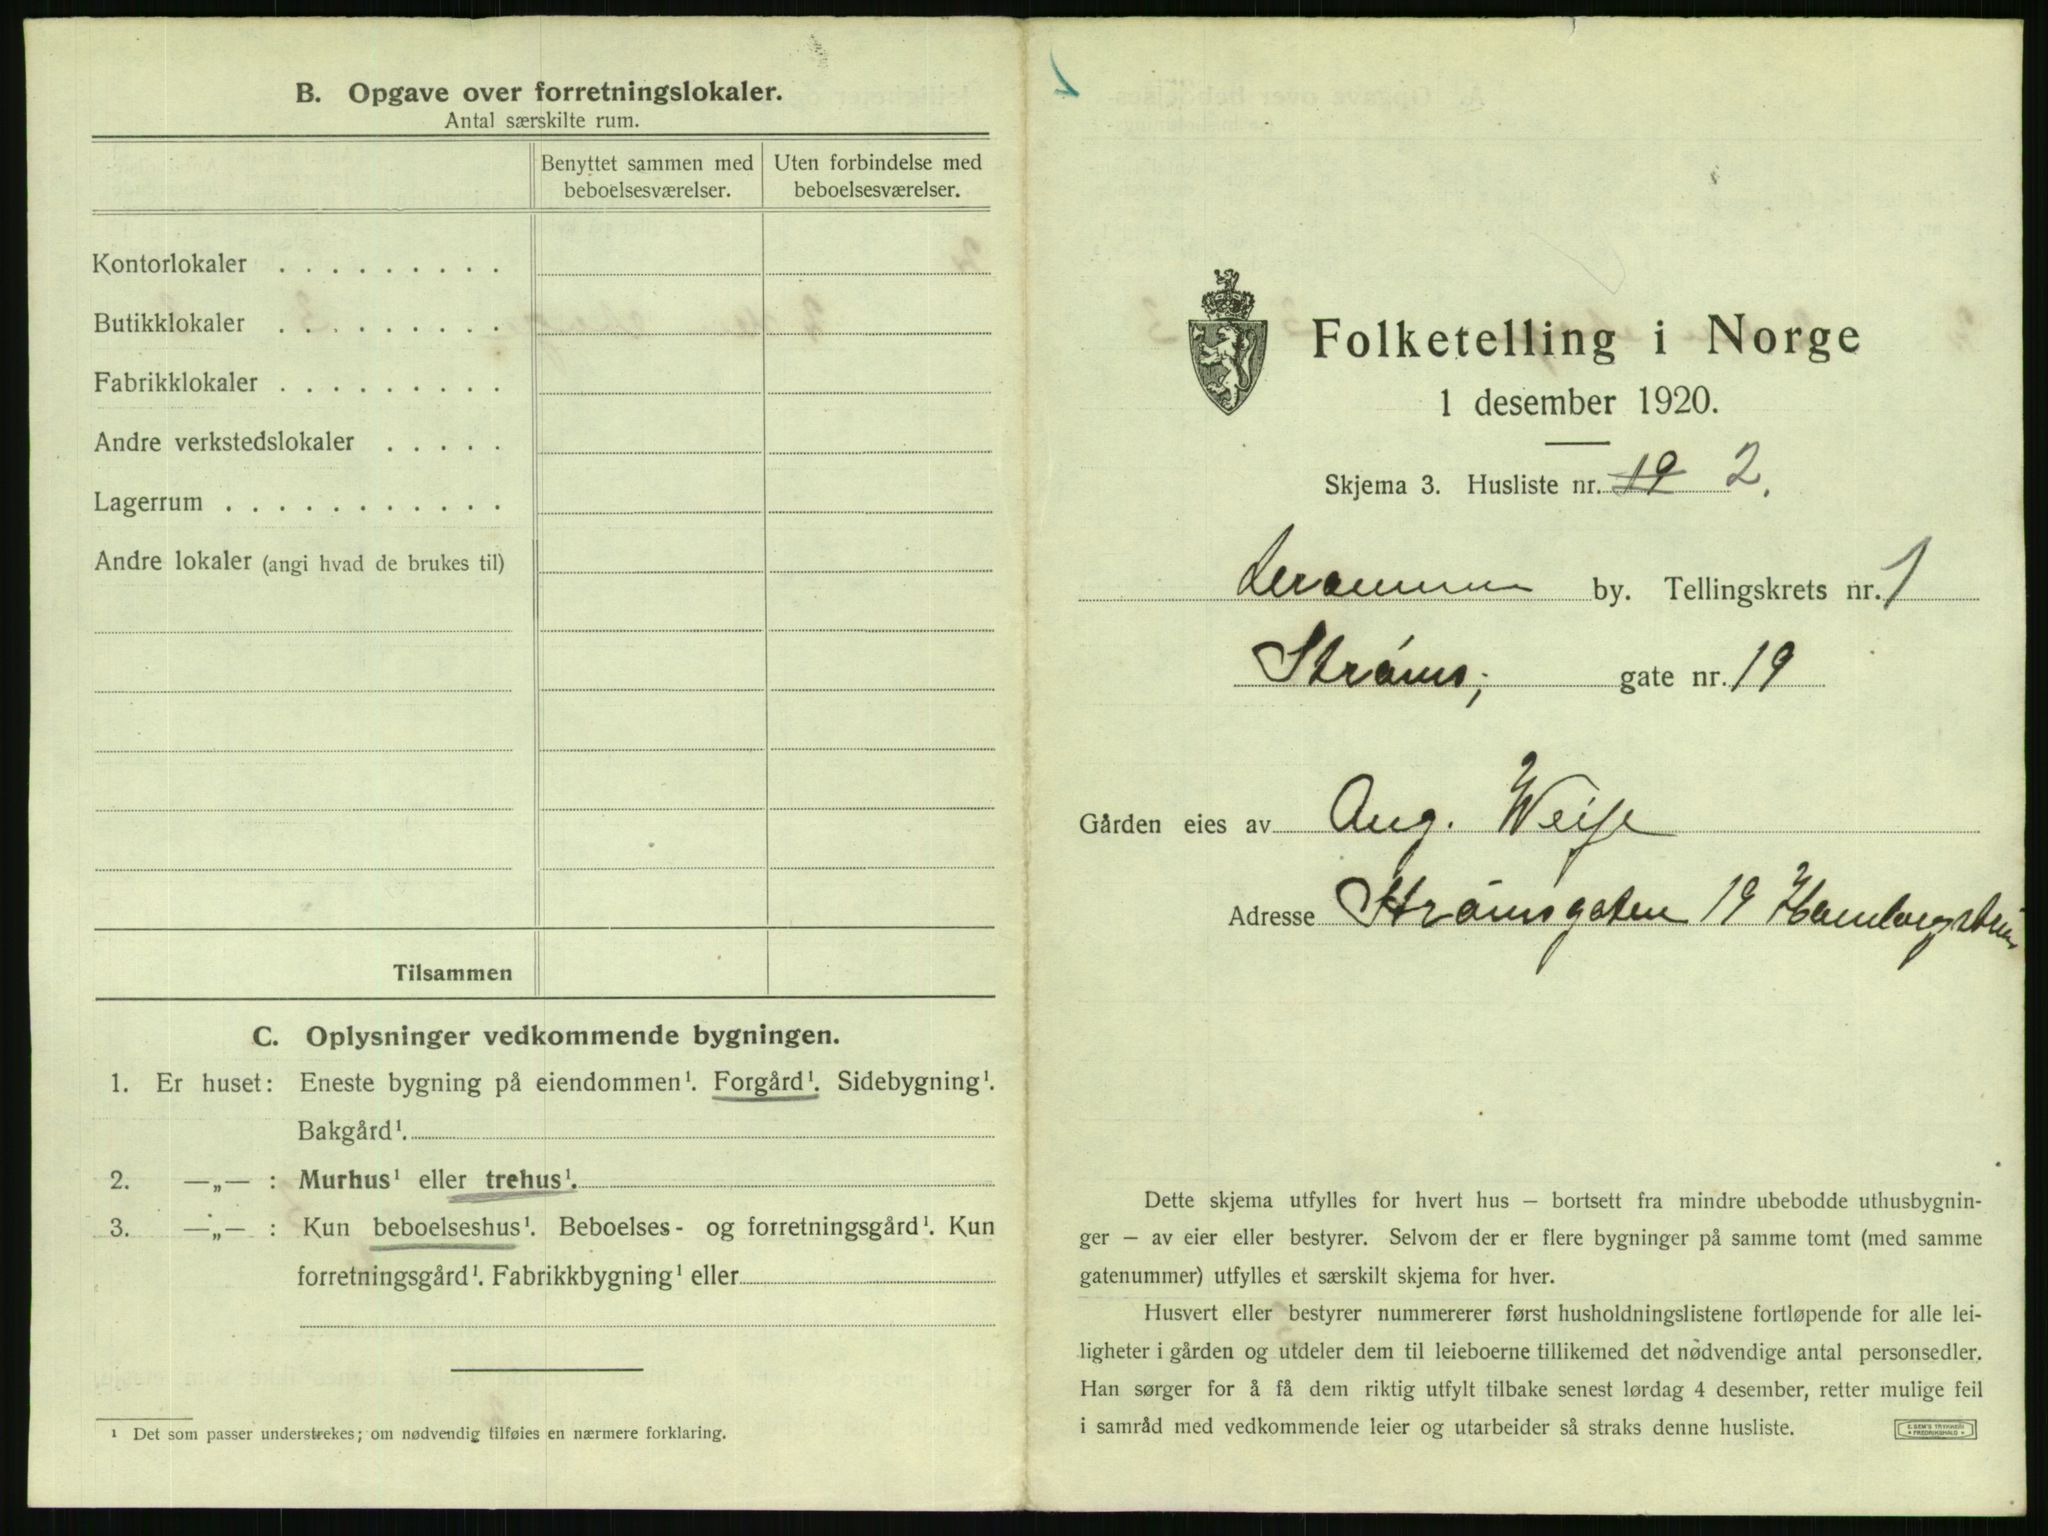 B. Opgave over forretningslokaler.
Antal særskilte rum.
Benyttet sammen med beboelsesværelser.
Uten forbindelse med beboelsesværelser.
Kontorlokaler . . . . . . . . .
Butikklokaler . . . . . . . . .
Fabrikklokaler . . . . . . . . .
Andre verkstedslokaler . . . . .
Lagerrum . . . . . . . . . . .
Andre lokaler (angi hvad de brukes til)
Tilsammen
C. Oplysninger vedkommende bygningen.
1. Er huset: Eneste bygning på eiendommen¹. Forgård¹. Sidebygning¹.
Bakgård¹.
2. —„— : Murhus¹ eller trehus¹.
3. —„— : Kun beboelseshus¹. Beboelses- og forretningsgård¹. Kun
forretningsgård¹. Fabrikkbygning¹ eller
¹ Det som passer understrekes; om nødvendig tilføies en nærmere forklaring.
Folketelling i Norge
1 desember 1920.
Skjema 3. Husliste nr. 19 2.
by. Tellingskrets nr. 1
Strøms; gate nr. 19
Gården eies av Aug. Weise
Adresse Strømsgaten 19
Dette skjema utfylles for hvert hus — bortsett fra mindre ubebodde uthusbygnin-
ger — av eier eller bestyrer. Selvom der er flere bygninger på samme tomt (med samme
gatenummer) utfylles et særskilt skjema for hver.
Husvert eller bestyrer nummererer først husholdningslistene fortløpende for alle lei-
ligheter i gården og utdeler dem til leieboerne tillikemed det nødvendige antal personsedler.
Han sørger for å få dem riktig utfylt tilbake senest lørdag 4 desember, retter mulige feil
i samråd med vedkommende leier og utarbeider så straks denne husliste.
E. SEM'S TRYKKERI
FREDRIKSHALD